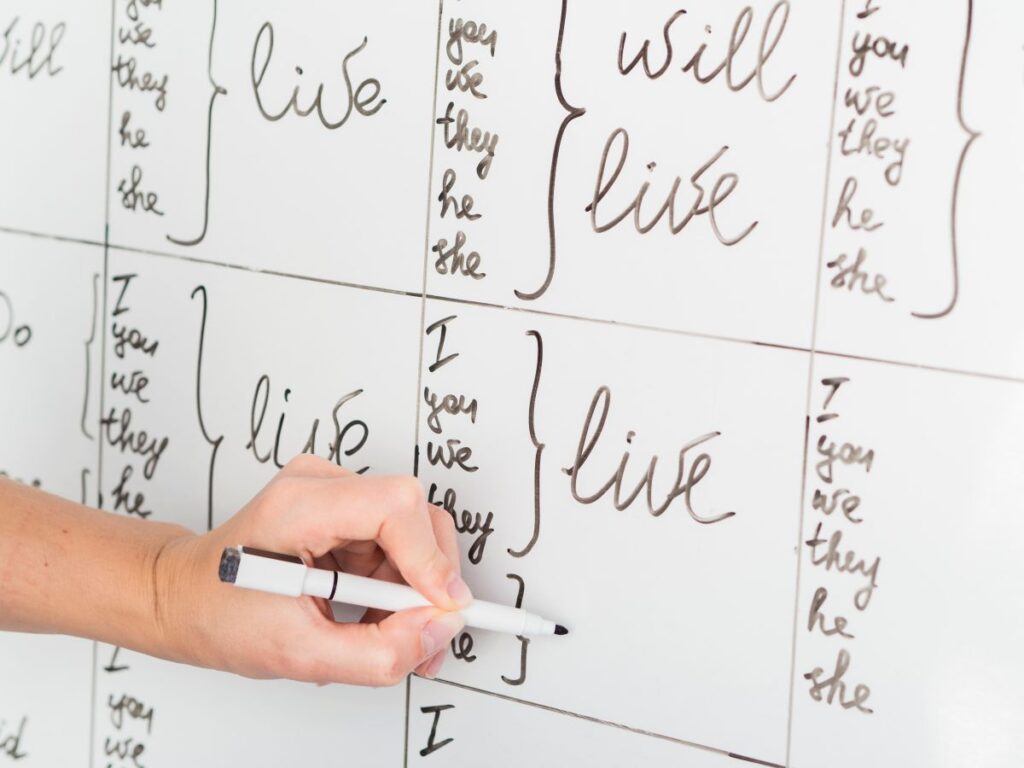 will
you
we
they
he
she
live
you
we
they
he
she
will
live
I
you
we
they
he
she
I
you
we
they
he
live
I
you
we
they
live
he
I
you
we
they
he
she
I
you
we
I